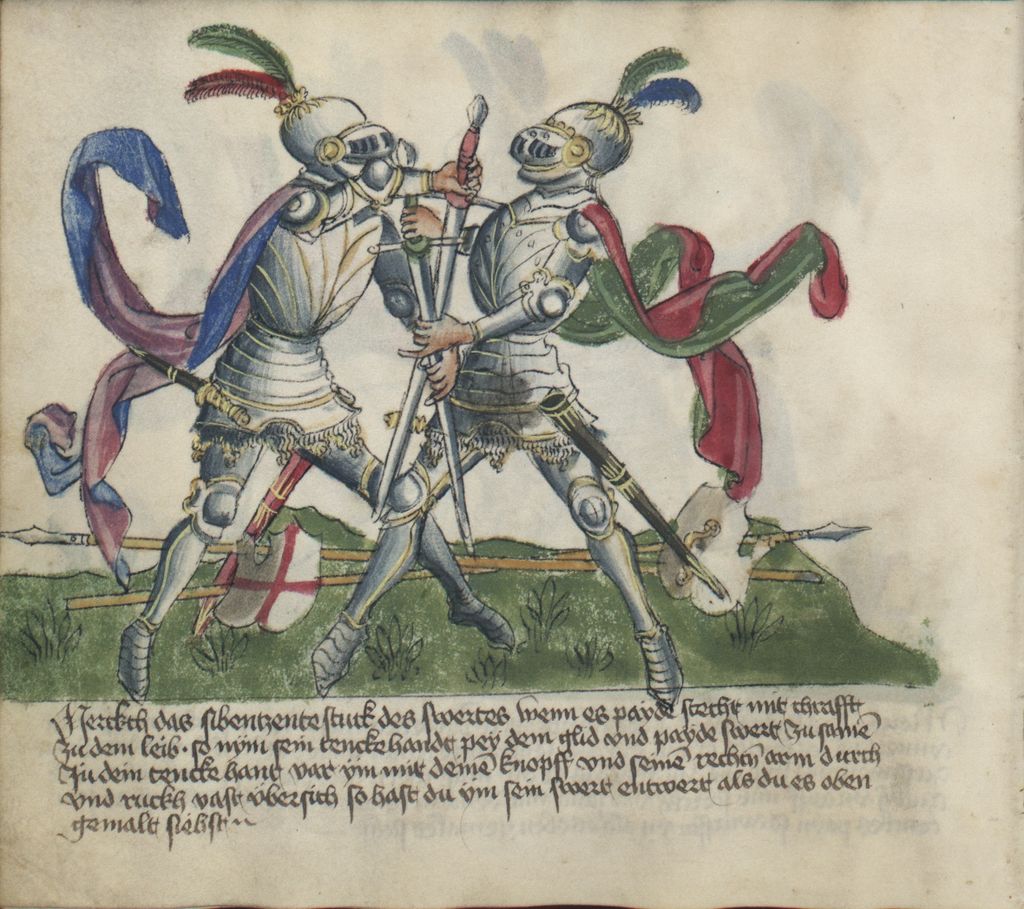 Merckch das sibentzente stuck des swertes wenn es payde stecht mit chrafft
zu dem leib · so nym sein tenckehandt pey dem glid vnd payde swert zu samē
Jn dein tencke hant var ym mit deinē knopff vnd seinē rechtn̄ arm durch
vnd ruckh vast vbersich so hast du ym sein swert entwert als du es oben
gemalt siehst ~